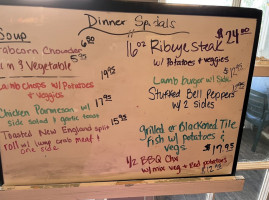 Dinner Specials
Soup
6.50
Crabcorn Chowder
5.75
n & Vegetable
19.95
Lamb Chops w/ Potatoes
& veggies
Chicken Parmesan w/ 17.95
side salad & garlic toast
Toasted New England split 15.95
roll w/ lump crab meat &
one side
$24.00
16oz Ribeye Steak
w/ Potatoes & veggies
Lamb burger w/ Side
Stuffed Bell Peppers
w/ 2 sides
Grilled or Blackened Tile
fish w/ potatoes &
veg's $17.95
1/2 BBQ Chx
w/ mix veg & Red potatoes